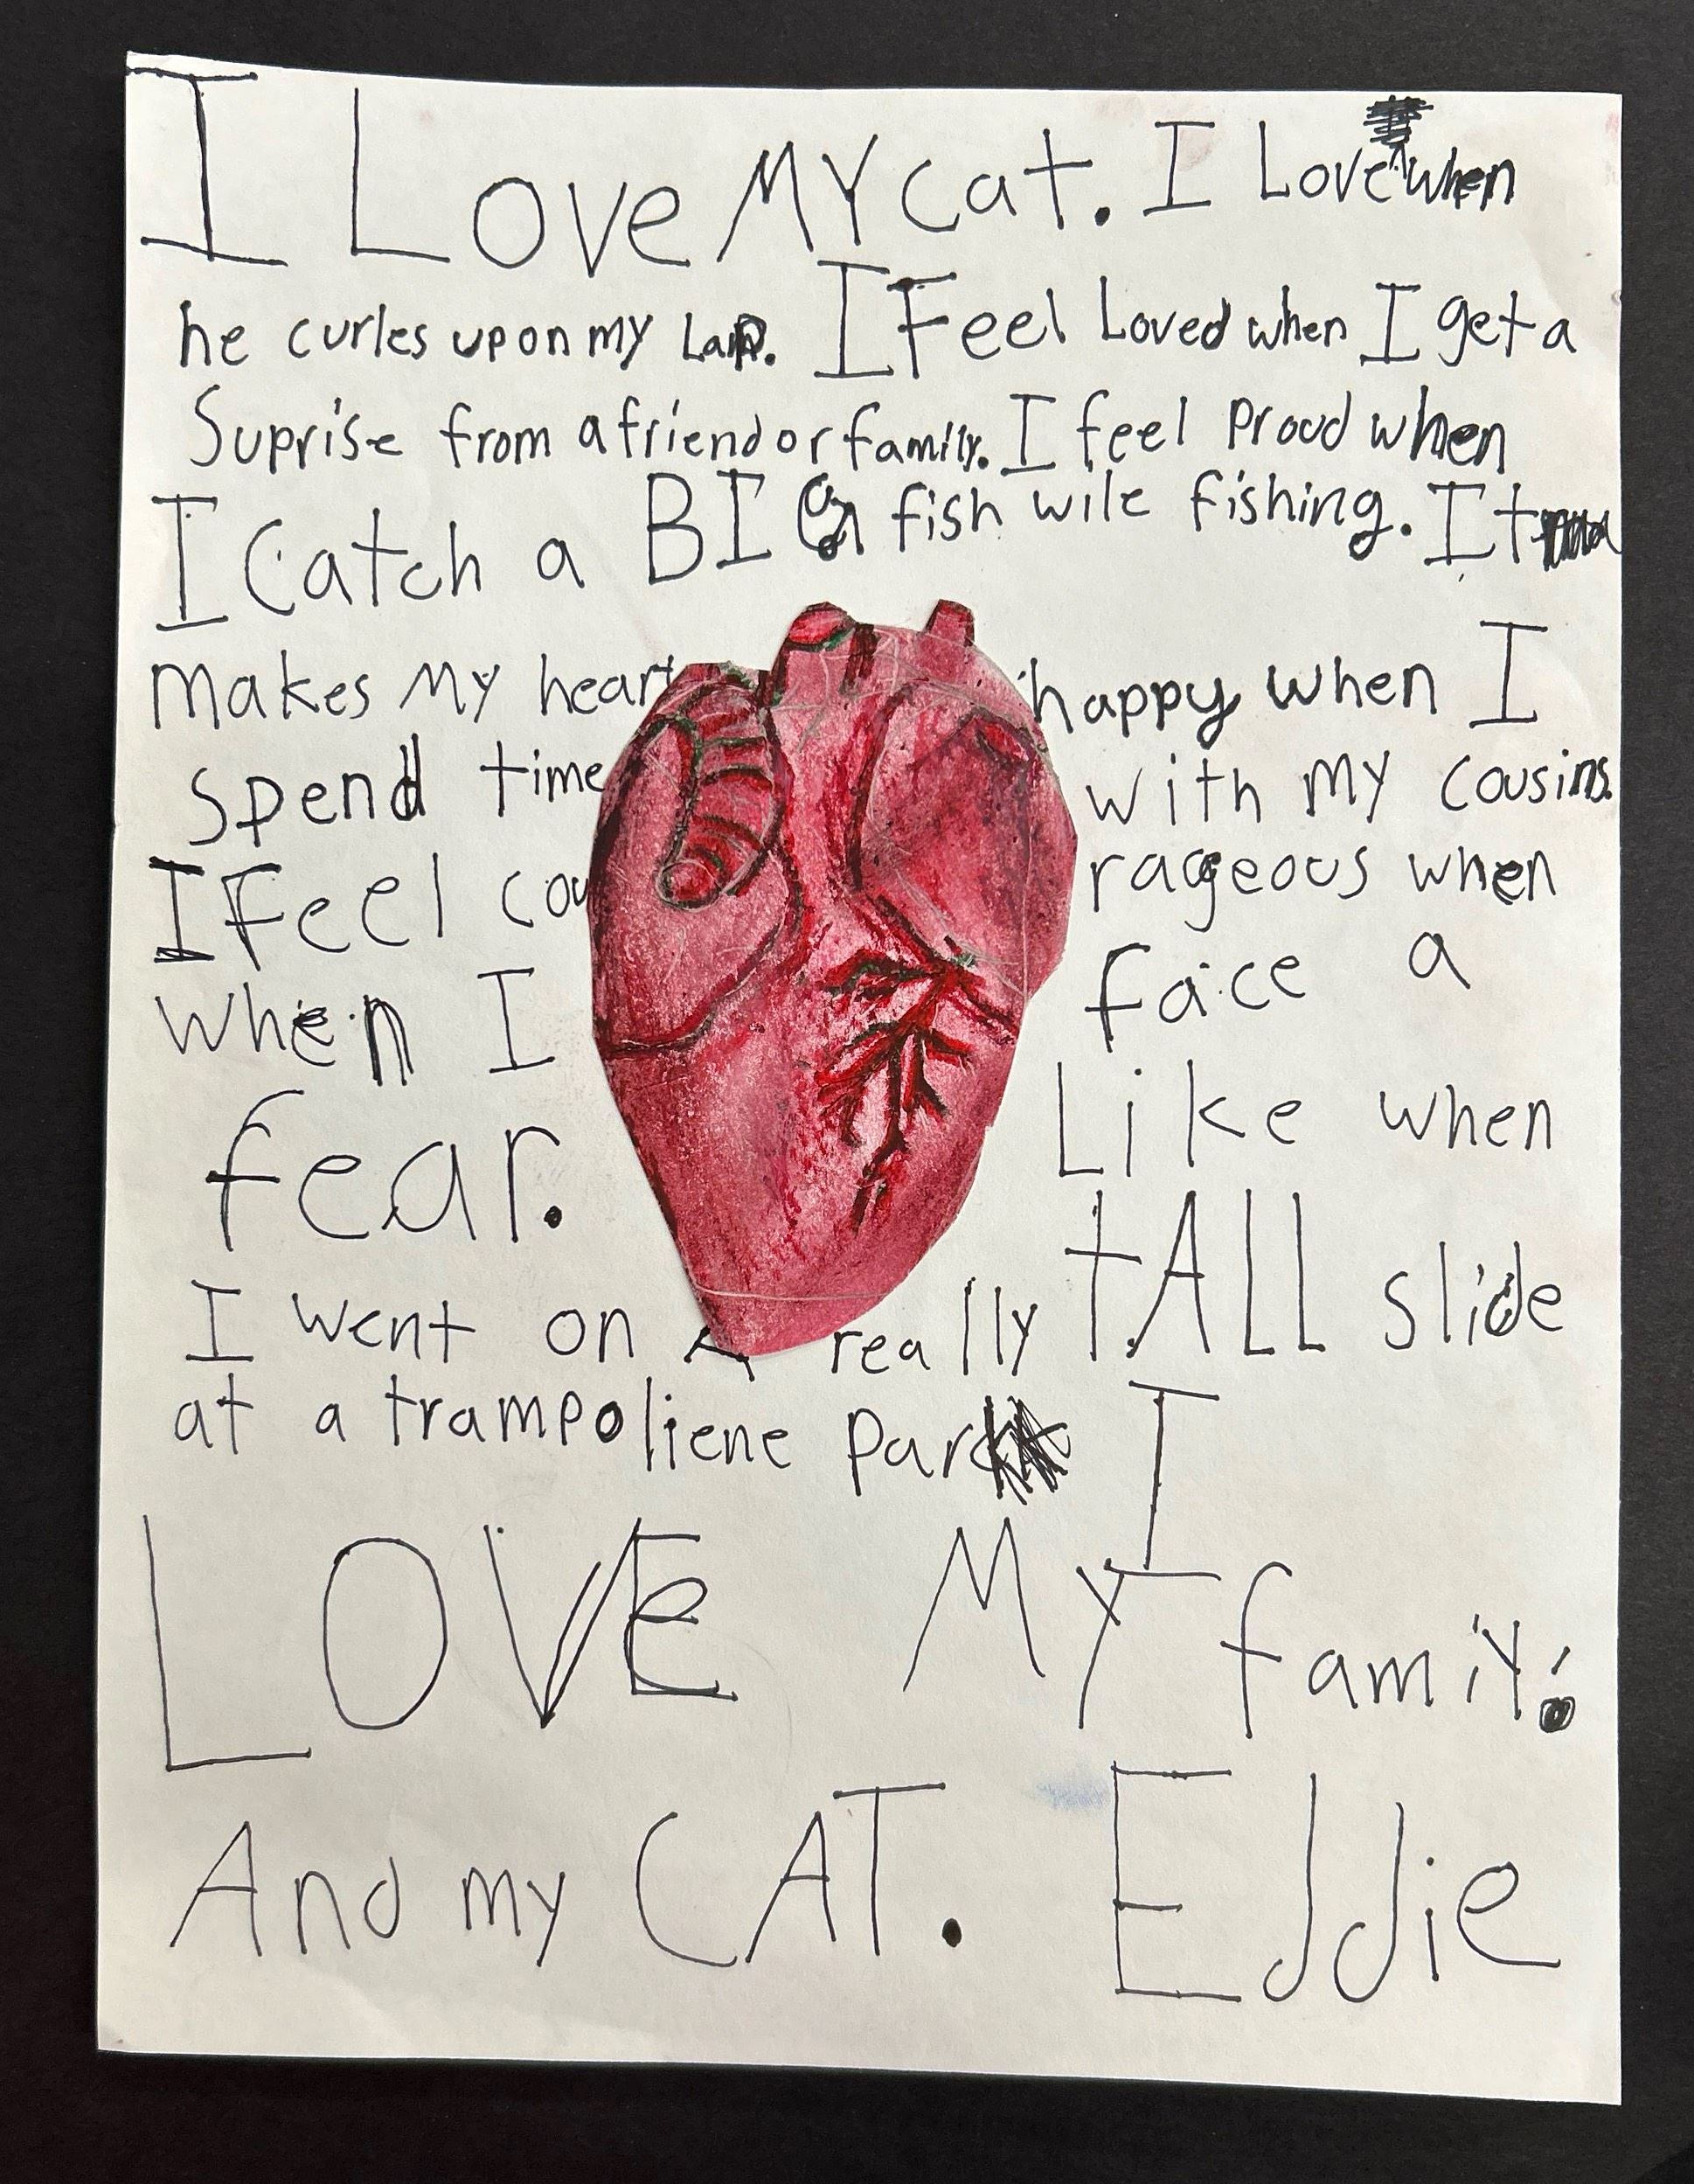 I Love MY cat. I Love when
he curles up on my Lap. I Feel Loved when I get a
Suprise from a friend or family. I feel Proud when
I Catch a BIG fish wile fishing. It
makes My heart happy when I
spend time with my cousins.
I Feel cou rageous when
when I face a
fear. Like when
I went on A really tALL slide
at a trampoliene park I
LOVE MY famiy!
And my CAT. Eddie